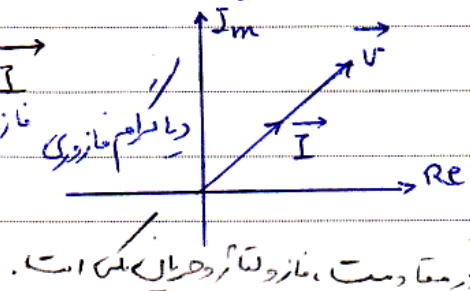 Im
I
V
فاز
دیاگرام فازوری
I
Re
در مقاومت، فاز ولتاژ و جریان یکی است.